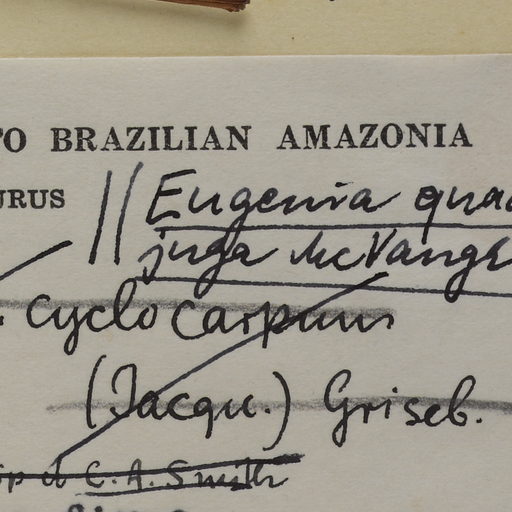 TO BRAZILIAN AMAZONIA
URUS
Eugenia quad
juga McVaugh
cyclocarpum
(Jacqu.) Griseb.
C. A. Smith